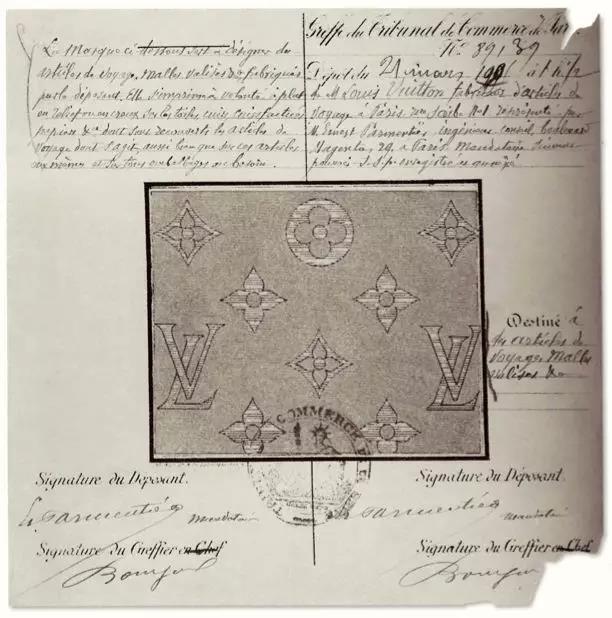 La Marque ci dessous sert à désigner des
articles de voyage, malles valises &c fabriqués
par le déposant. Elle s'imprime à volonté à plat
en relief ou en creux sur les toiles cuirs
papiers &c dont sont recouverts les articles de
Voyage dont il s'agit, aussi bien que sur ces articles
eux mêmes et au besoin.
Greffe du Tribunal de Commerce de
No. 89139
Dépôt du 21 mars à
de M. Louis Vuitton fabricant d'articles de
voyage à Paris rue Scribe No 1 représenté par
M. Ernest Parmentier, ingénieur conseil, boulevard
Magenta, 29, à Paris. Mandataire
pouvoir S.S.P. enregistré
LV
LV
COMMERCE
Destiné à
des articles de
Voyages Malles
valises &c
Signature du Déposant.
Signature du Déposant.
Parmentier Mandataire
Parmentier Mandataire
Signature du Greffier en Chef
Signature du Greffier en Chef